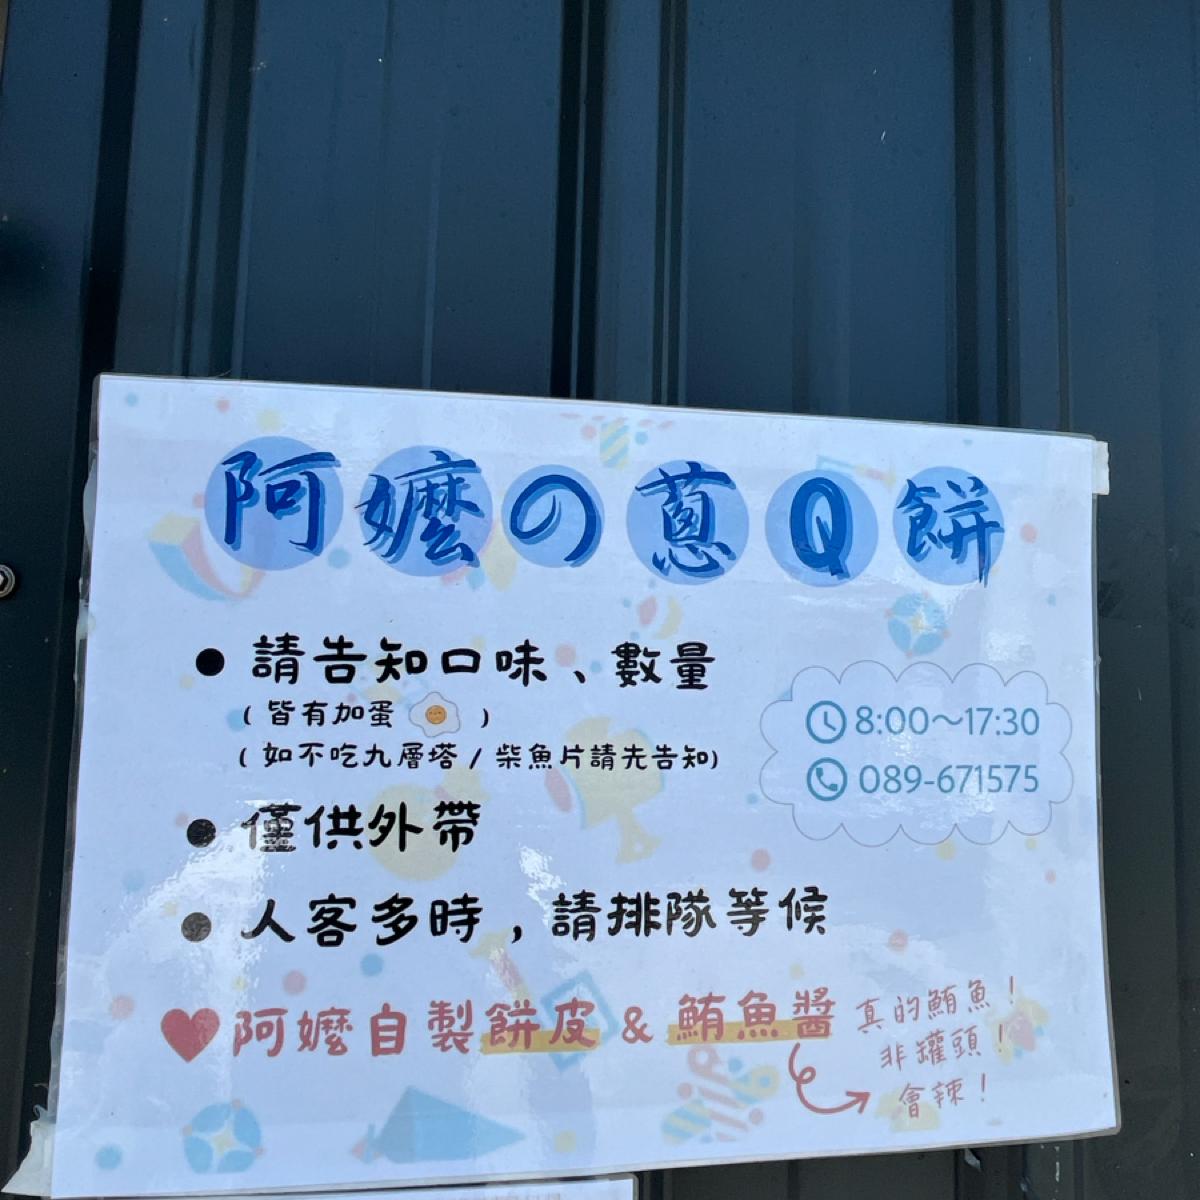 阿嬤の蔥Q餅
● 請告知口味、數量
( 皆有加蛋 )
( 如不吃九層塔 / 柴魚片請先告知)
8:00～17:30
089-671575
● 僅供外帶
● 人客多時，請排隊等候
♥ 阿嬤自製餅皮 & 鮪魚醬
真的鮪魚！
非罐頭！
會辣！